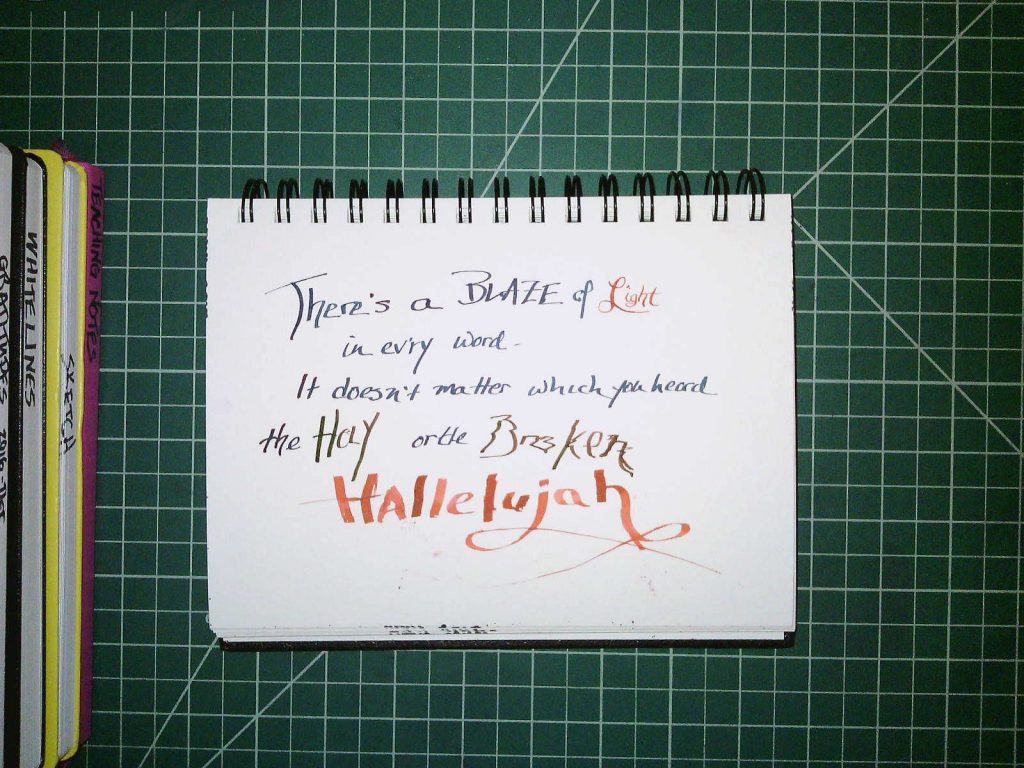 TEACHING NOTES
SKETCH
WHITELINES
There's a BLAZE of Light
in evry word-
It doesn't matter which you heard
the HOly or the Broken
HAllelujah